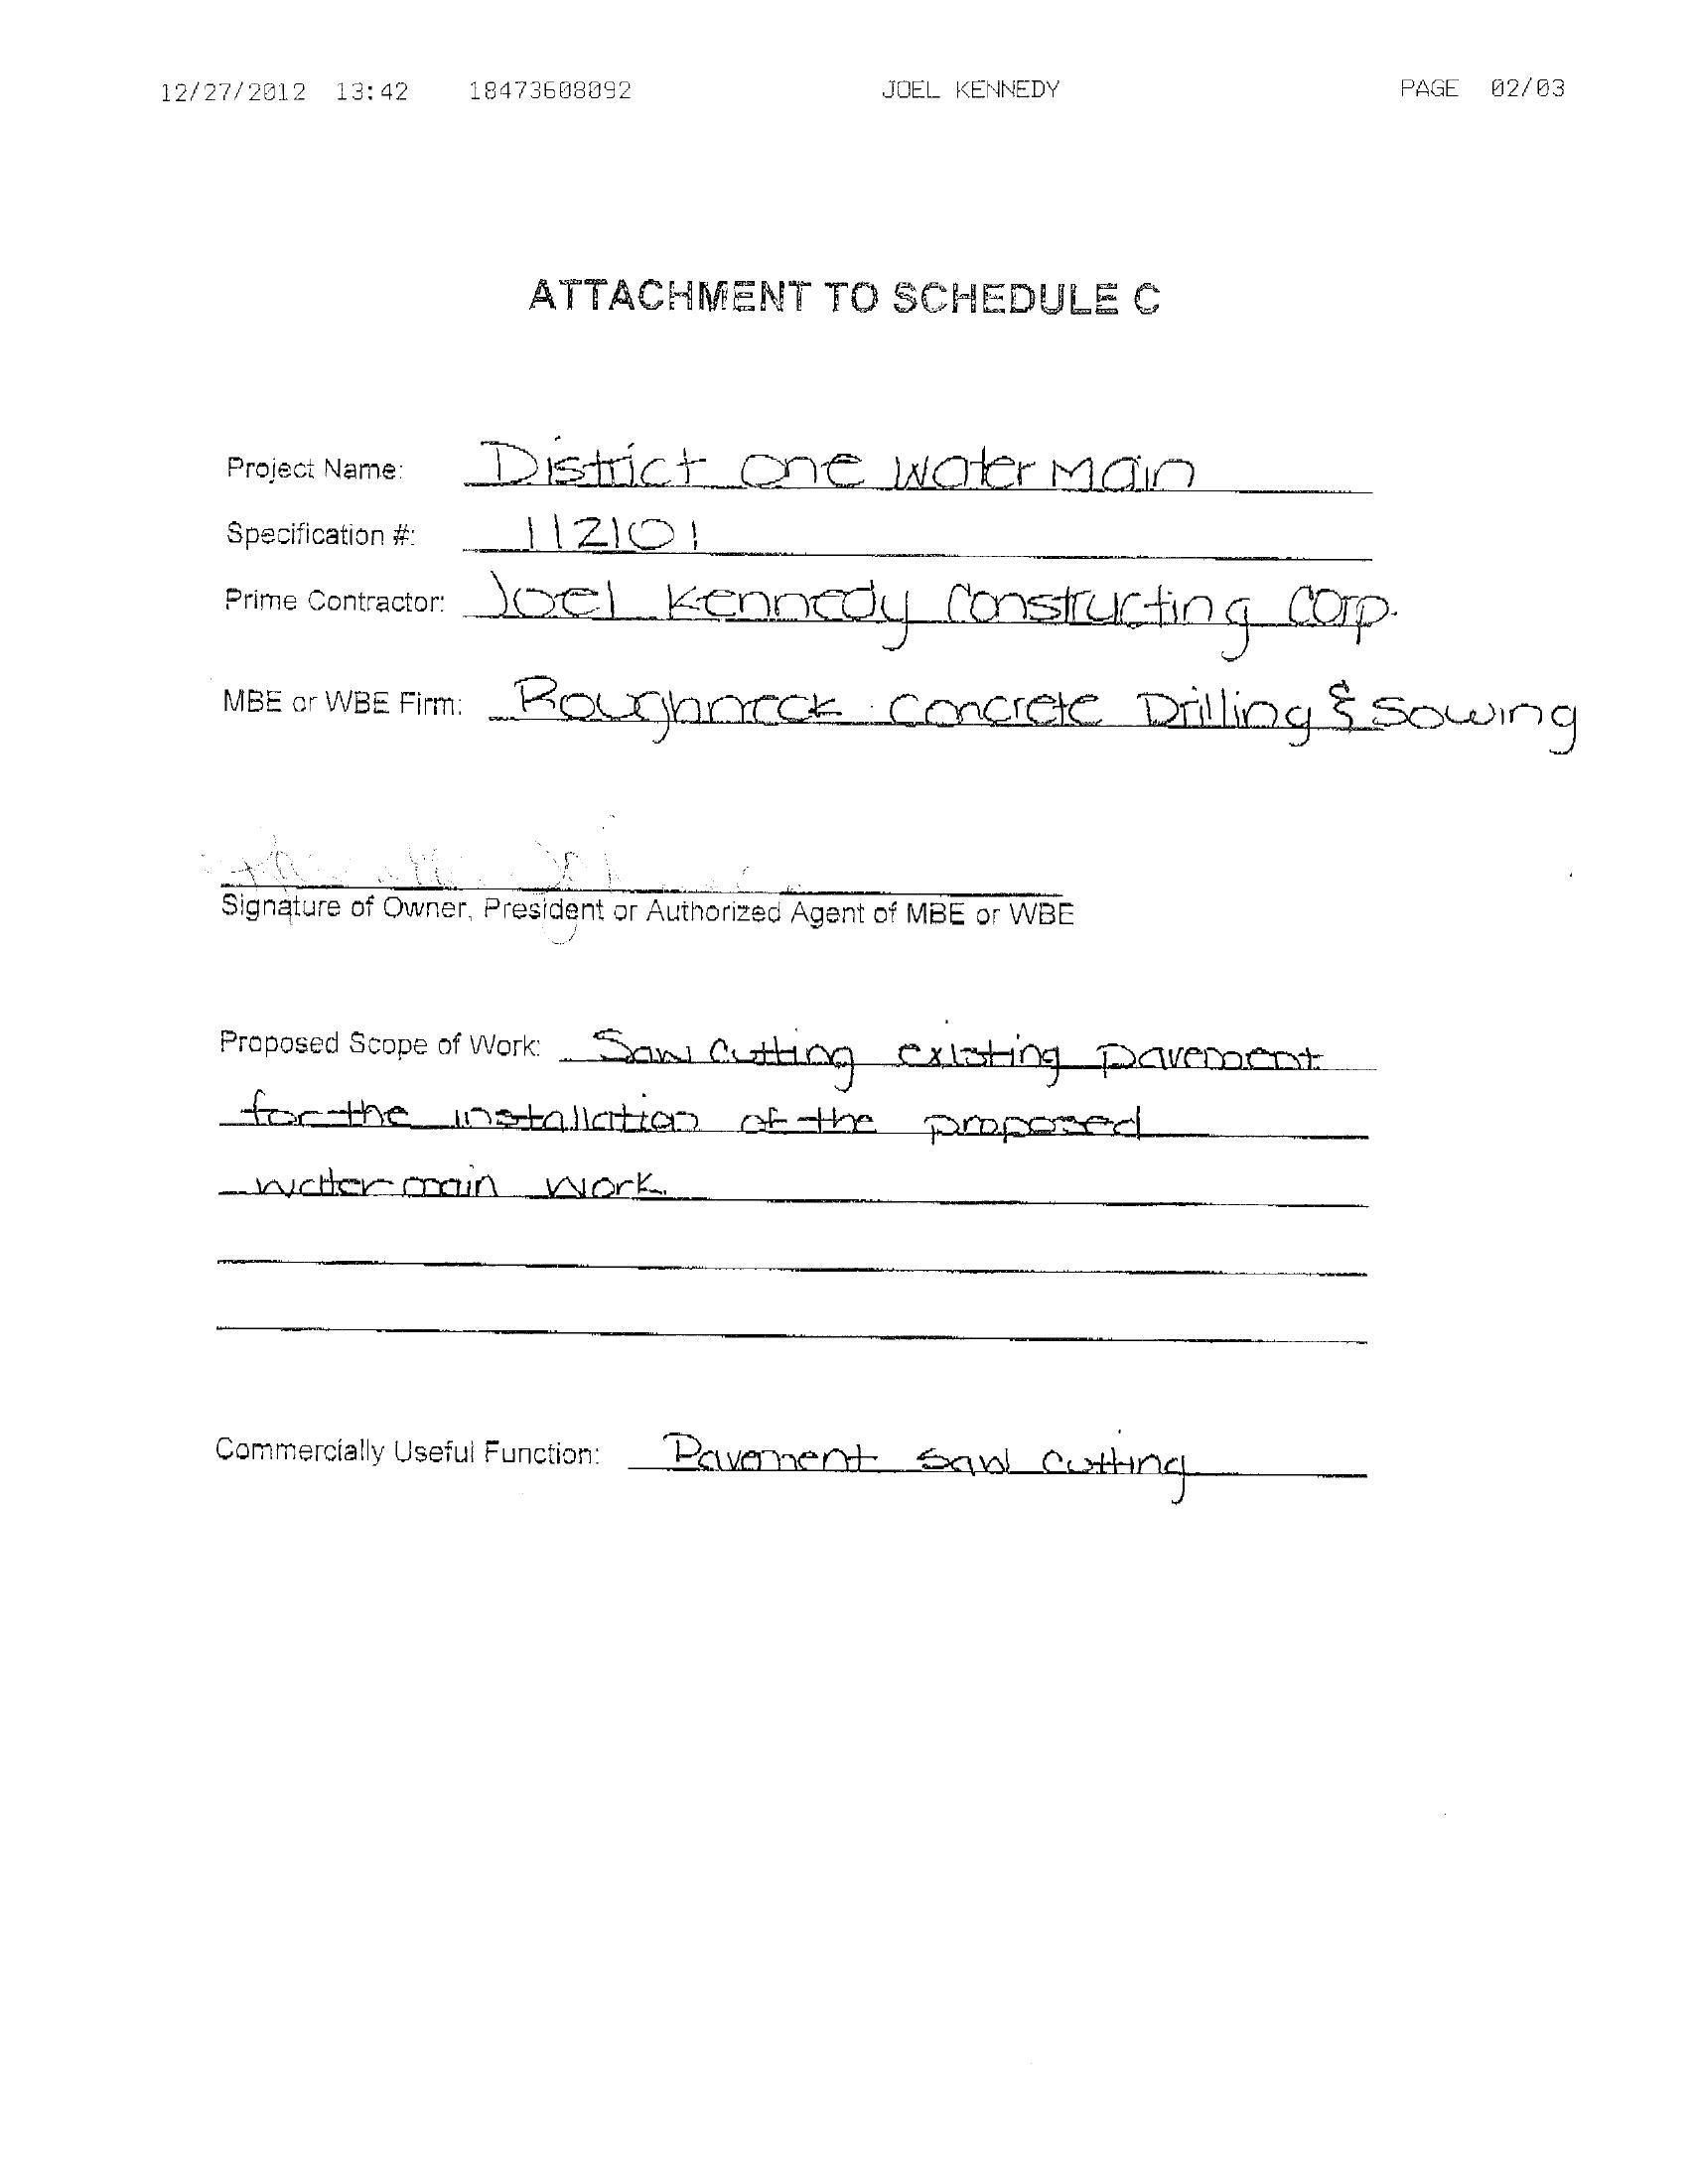 12/27/2012 13:42 18473608092 JOEL KENNEDY PAGE 02/03
ATTACHMENT TO SCHEDULE C
Project Name: District One Water Main
Specification #: 112101
Prime Contractor: Joel Kennedy Constructing Corp.
MBE or WBE Firm: Roughneck Concrete Drilling & Sawing
Signature of Owner, President or Authorized Agent of MBE or WBE
Proposed Scope of Work: Saw Cutting existing pavement
for the installation of the proposed
water main work.
Commercially Useful Function: Pavement Saw Cutting